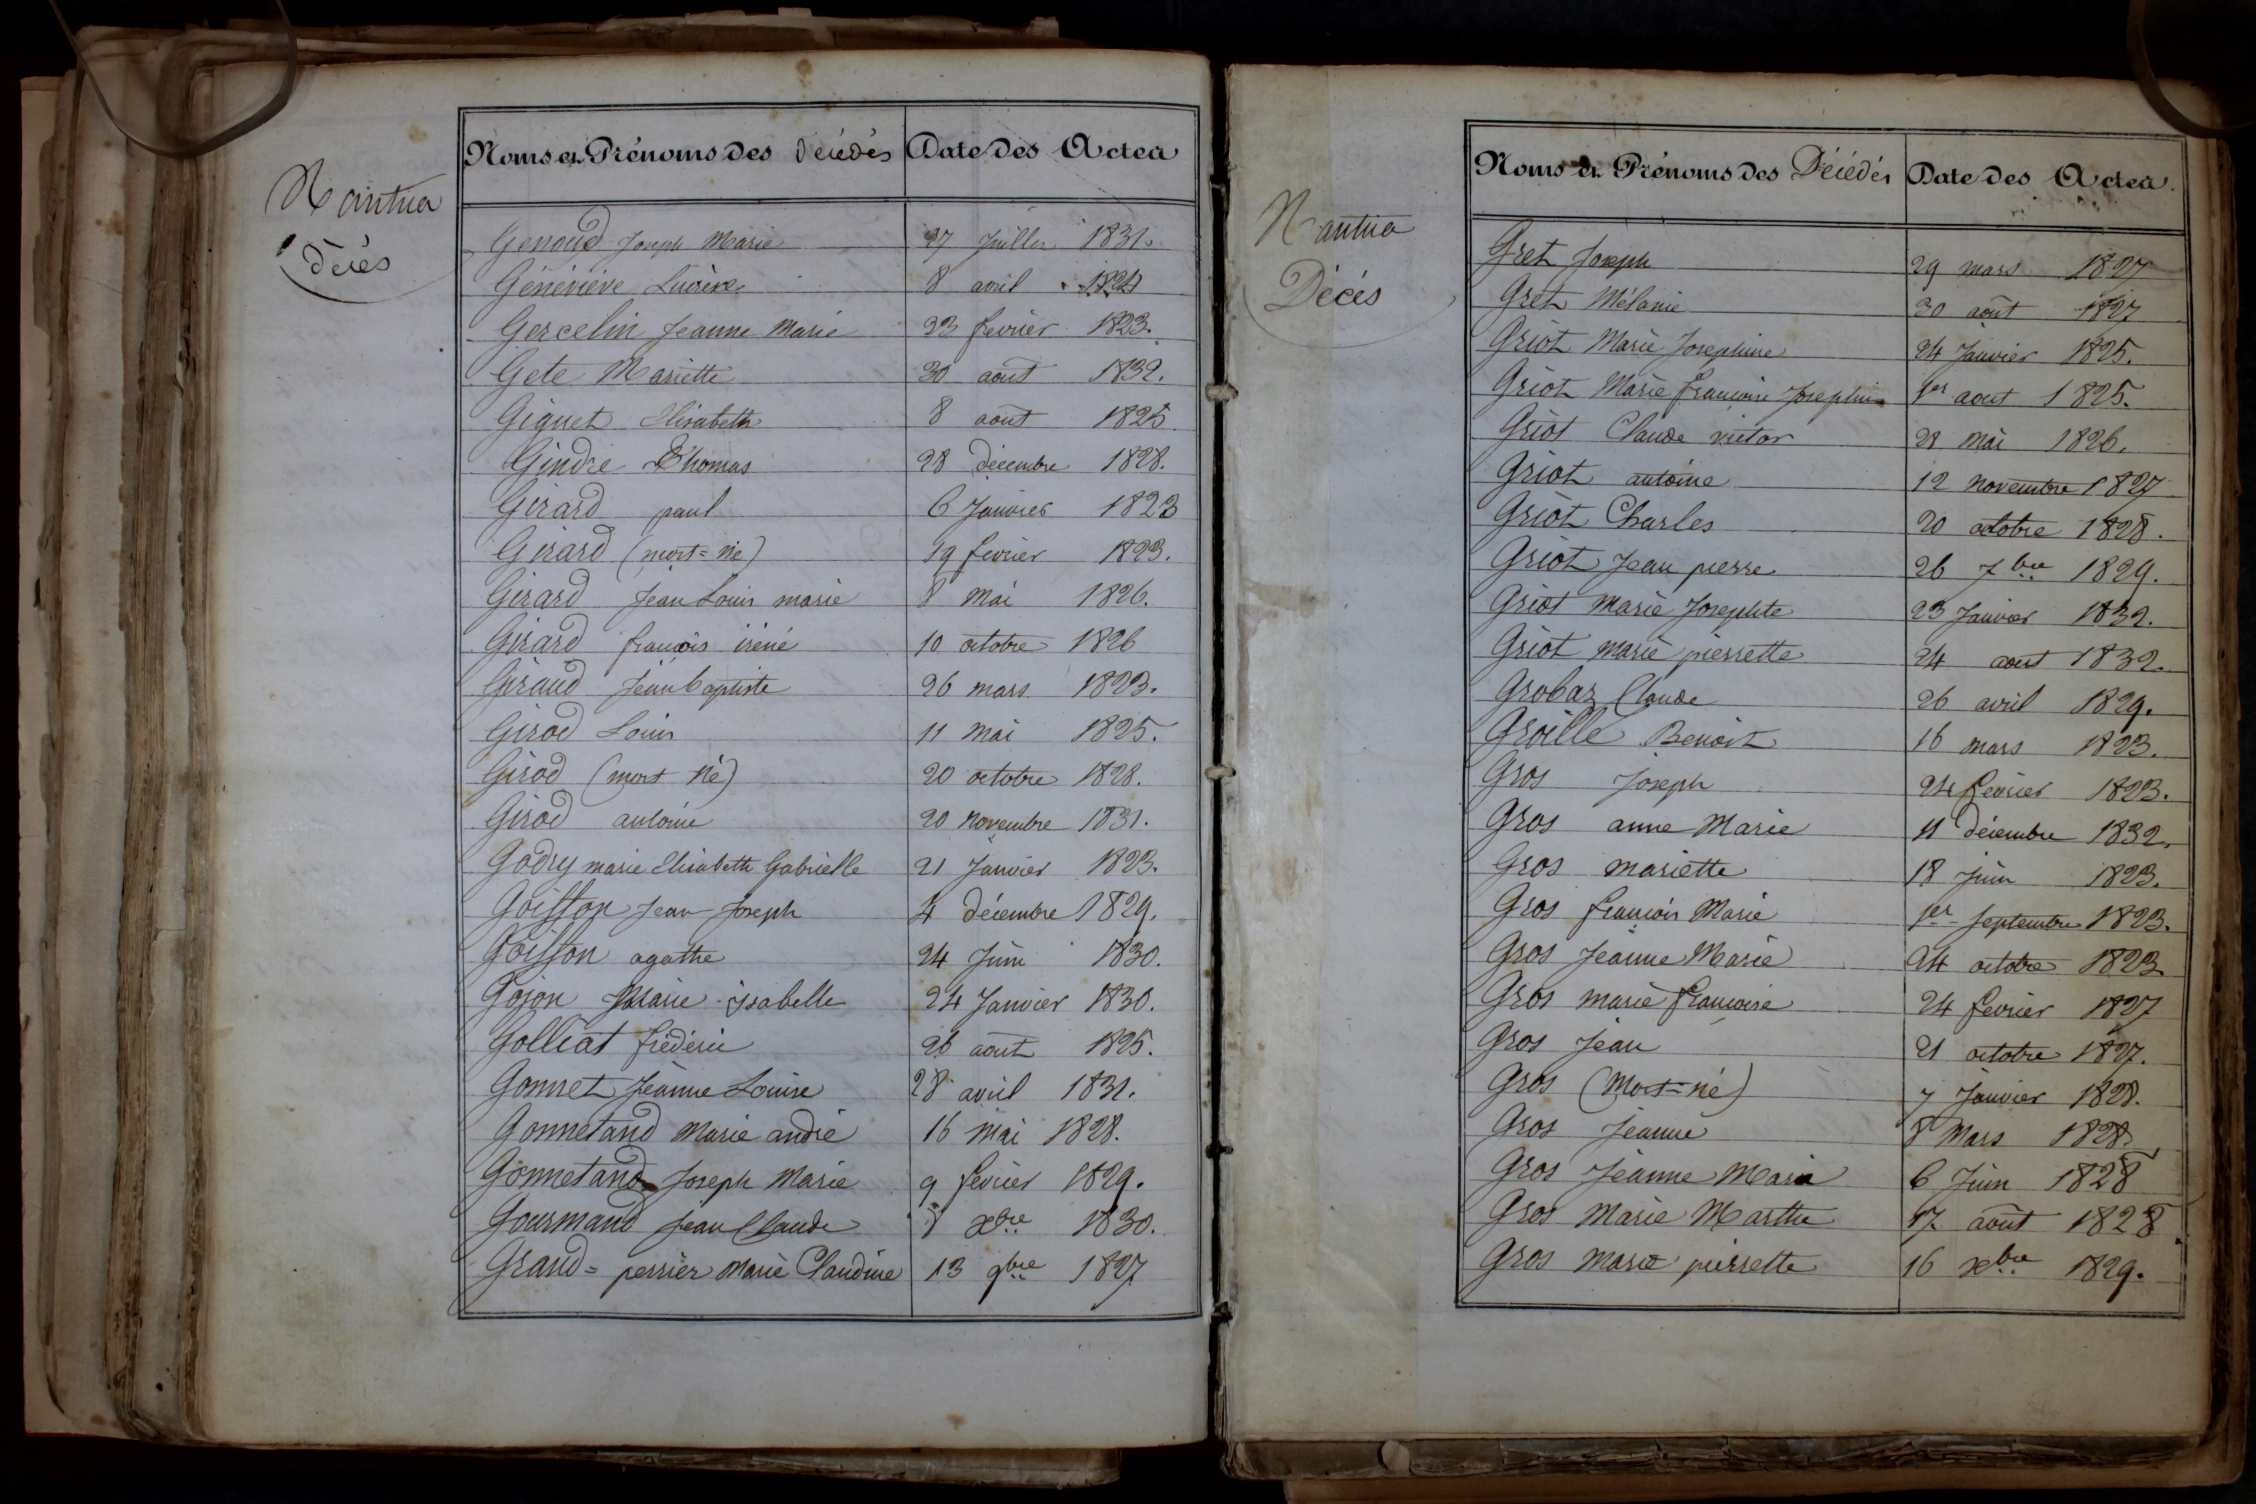 Nantua
Décés
Noms et Prénoms des Décédés Date des Actes
Genoud Joseph Marie 27 Juillet 1831.
Géneviève Lucière 8 avril 1824
Gercelin Jeanne Marie 23 fevrier 1823.
Gete Mariette 30 aout 1832.
Giguet Elisabeth 8 aout 1825
Gindre Thomas 28 décembre 1828.
Girard paul 6 Janvier 1823
Girard (mort=né) 19 fevrier 1823.
Girard Jean Louis marie 8 Mai 1826.
Girard françois iréné 10 octobre 1826
Giraud Jean baptiste 26 mars 1823.
Girod Louis 11 Mai 1825.
Girod (mort né) 20 octobre 1828.
Girod antoine 20 Novembre 1831.
Godry marie Elisabeth Gabrielle 21 Janvier 1823.
Goisson Jean Joseph 4 décembre 1829.
Goisson agathe 24 Juin 1830.
Gojon Marie isabelle 24 Janvier 1830.
Golliat frédéric 26 aout 1825.
Gonnet Jeanne Louise 28 avril 1831.
Gonnetand Marie andré 16 Mai 1828.
Gonnetand Joseph Marie 9 fevrier 1829.
Gourmand Jean Claude 8 xbre 1830.
Grand=perrier Marie Claudine 13 9bre 1827
Nantua
Décés
Noms et Prénoms des Décédés Date des Actes
Gret Joseph 29 mars 1827
Gret Mélanie 30 août 1827
Griot Marie Josephine 24 Janvier 1825.
Griot Marie françoise Josephine 1er aout 1825.
Griot Claude victor 28 Mai 1826.
Griot antoine 12 Novembre 1827
Griot Charles 20 octobre 1828.
Griot Jean pierre 26 7bre 1829.
Griot Marie Josephte 23 Janvier 1832.
Griot Marie pierrette 24 aout 1832.
Grobaz Claude 26 avril 1829.
Groille Benoit 16 mars 1823.
Gros Joseph 24 fevrier 1823.
Gros anne Marie 11 décembre 1832.
Gros mariette 18 Juin 1823.
Gros françois Marie 1er Septembre 1823.
Gros Jeanne Marie 24 octobre 1823
Gros marie françoise 24 fevrier 1827
Gros Jean 21 octobre 1827.
Gros (Mort=né) 7 Janvier 1828.
Gros Jeanne 8 Mars 1828.
Gros Jeanne Maria 6 Juin 1828
Gros Marie Marthe 17 août 1828
Gros Marie pierrette 16 xbre 1829.